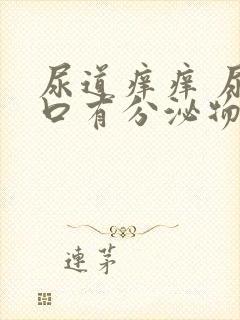 尿道痒痒 尿
口有分泌物
連茅